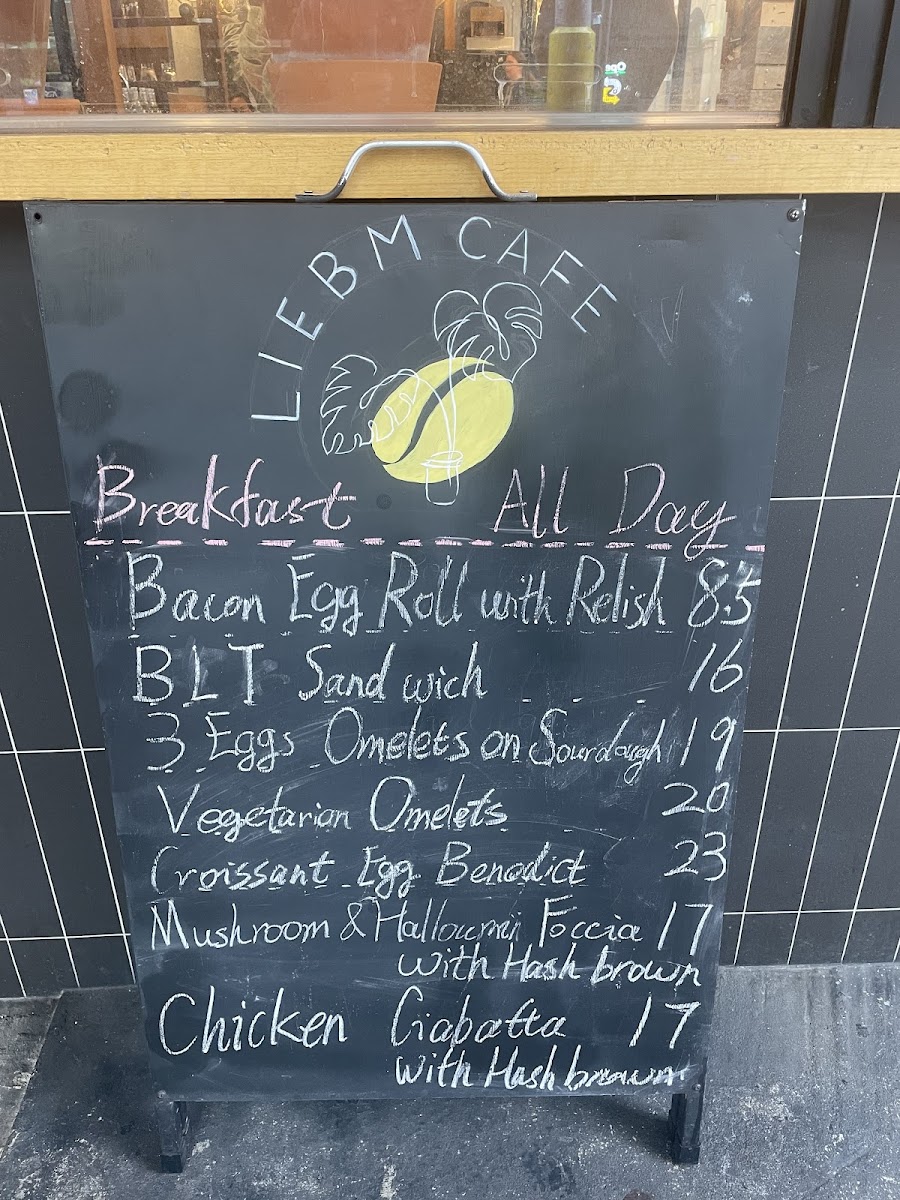 LIEBM CAFE
Breakfast All Day
Bacon Egg Roll with Relish 8.5
BLT Sandwich 16
3 Eggs Omelets on Sourdough 19
Vegetarian Omelets 20
Croissant Egg Benedict 23
Mushroom & Halloumi Foccia 17
with Hash brown
Chicken Ciabatta 17
with Hash brown